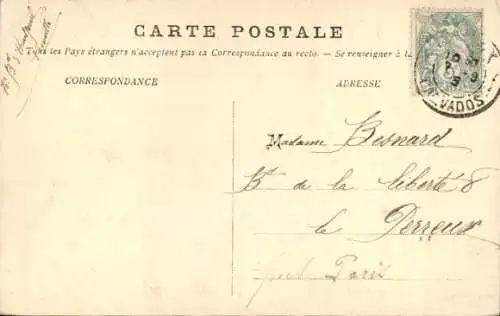 CARTE POSTALE
Tous les Pays étrangers n'acceptent pas la Correspondance au recto. — Se renseigner à la
CORRESPONDANCE
ADRESSE
VADOS
Madame Besnard
Bd de la liberté 8
le Perreux
Paris